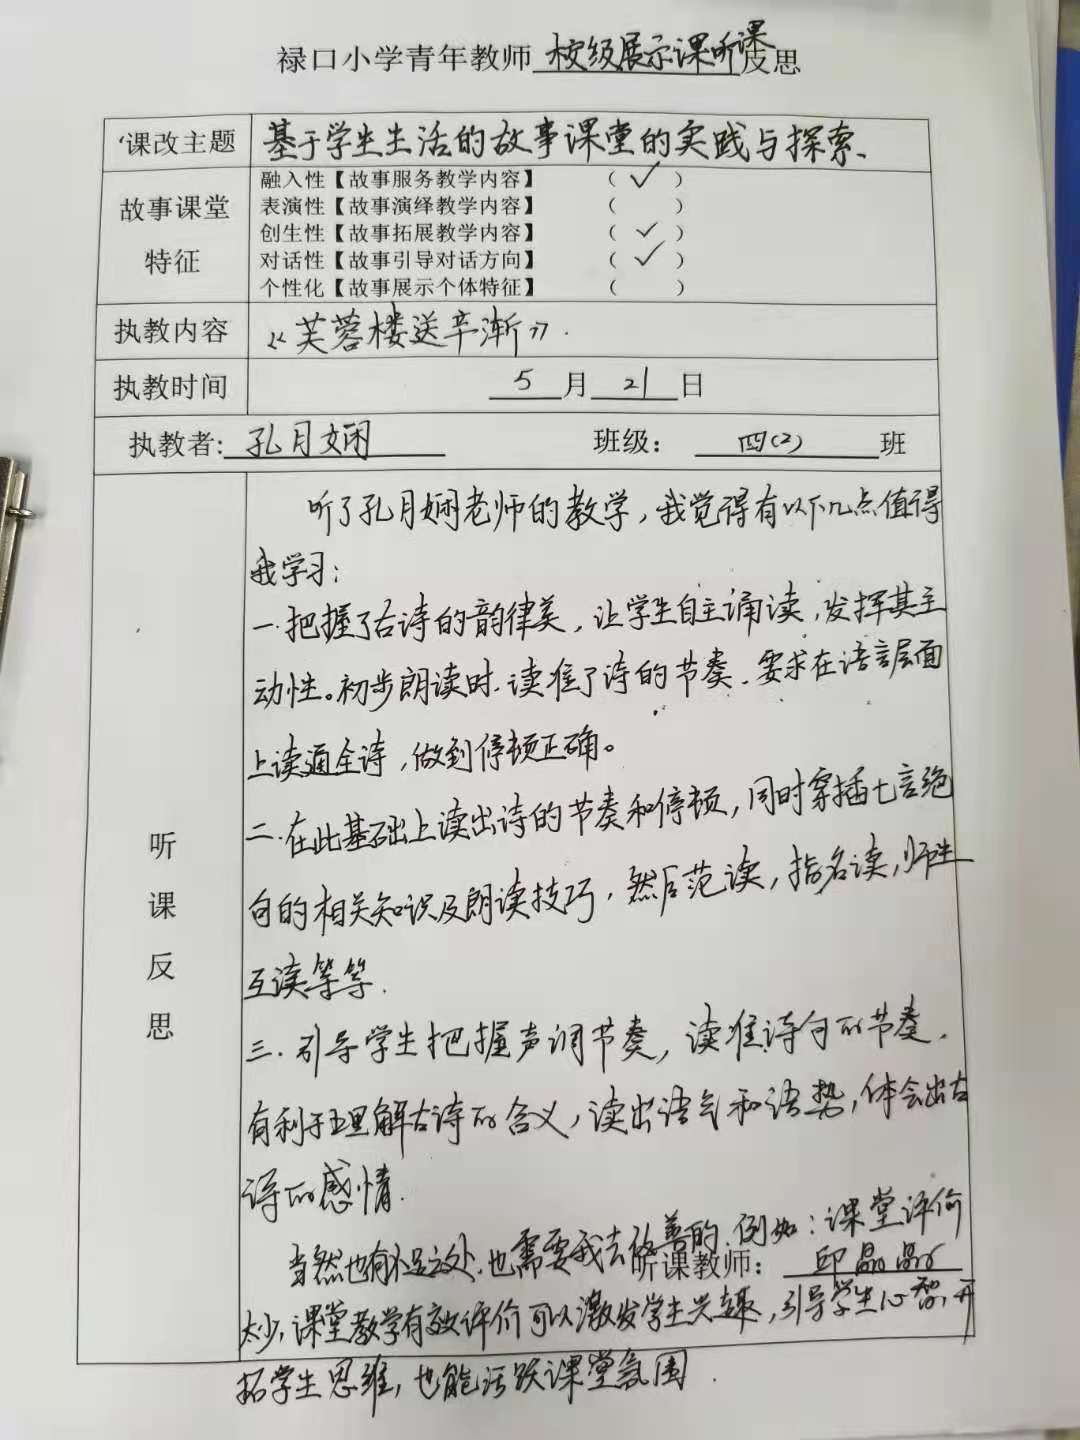 禄口小学青年教师校级展示课听课反思
课改主题 基于学生生活的故事课堂的实践与探索、
故事课堂特征
融入性【故事服务教学内容】 （ ✓ ）
表演性【故事演绎教学内容】 （ ）
创生性【故事拓展教学内容】 （ ✓ ）
对话性【故事引导对话方向】 （ ✓ ）
个性化【故事展示个体特征】 （ ）
执教内容 《芙蓉楼送辛渐》.
执教时间 5 月 21 日
执教者: 孔月娴 班级： 四(2) 班
听课反思
听了孔月娴老师的教学，我觉得有以下几点值得
我学习：
一.把握了古诗的韵律美，让学生自主诵读，发挥其主
动性。初步朗读时.读准了诗的节奏.要求在语言层面
上读通全诗，做到停顿正确。
二.在此基础上读出诗的节奏和停顿，同时穿插七言绝
句的相关知识及朗读技巧，然后范读，指名读，师生
互读等等.
三.引导学生把握声调节奏，读准诗句的节奏.
有利于理解古诗的含义，读出语气和语势，体会出古
诗的感情.
当然也有不足之处.也需要我去改善的.例如：课堂评价
听课教师： 邱晶晶
太少，课堂教学有效评价可以激发学生兴趣，引导学生心智，开
拓学生思维，也能活跃课堂氛围.